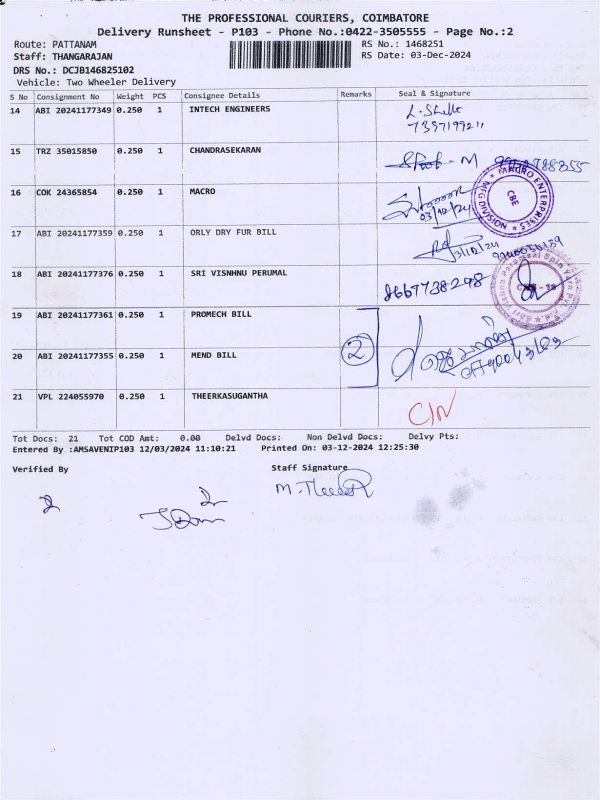 THE PROFESSIONAL COURIERS, COIMBATORE
Delivery Runsheet - P103 - Phone No.:0422-3505555 - Page No.:2
Route: PATTANAM RS No.: 1468251
Staff: THANGARAJAN RS Date: 03-Dec-2024
DRS No.: DCJB146825102
Vehicle: Two Wheeler Delivery
S No Consignment No Weight PCS Consignee Details Remarks Seal & Signature
14 ABI 20241177349 0.250 1 INTECH ENGINEERS
7397199211
15 TRZ 35015850 0.250 1 CHANDRASEKARAN
16 COK 24365854 0.250 1 MACRO
03/12/24
MACRO ENTERPRISES
MFG DIVISION
CBE
17 ABI 20241177359 0.250 1 ORLY DRY FUR BILL
3/12/24
18 ABI 20241177376 0.250 1 SRI VISNHNU PERUMAL
8667738248
19 ABI 20241177361 0.250 1 PROMECH BILL
2
20 ABI 20241177355 0.250 1 MEND BILL
21 VPL 224055970 0.250 1 THEERKASUGANTHA
C/N
Tot Docs: 21 Tot COD Amt: 0.00 Delvd Docs: Non Delvd Docs: Delvy Pts:
Entered By :AMSAVENIP103 12/03/2024 11:10:21 Printed On: 03-12-2024 12:25:30
Verified By Staff Signature